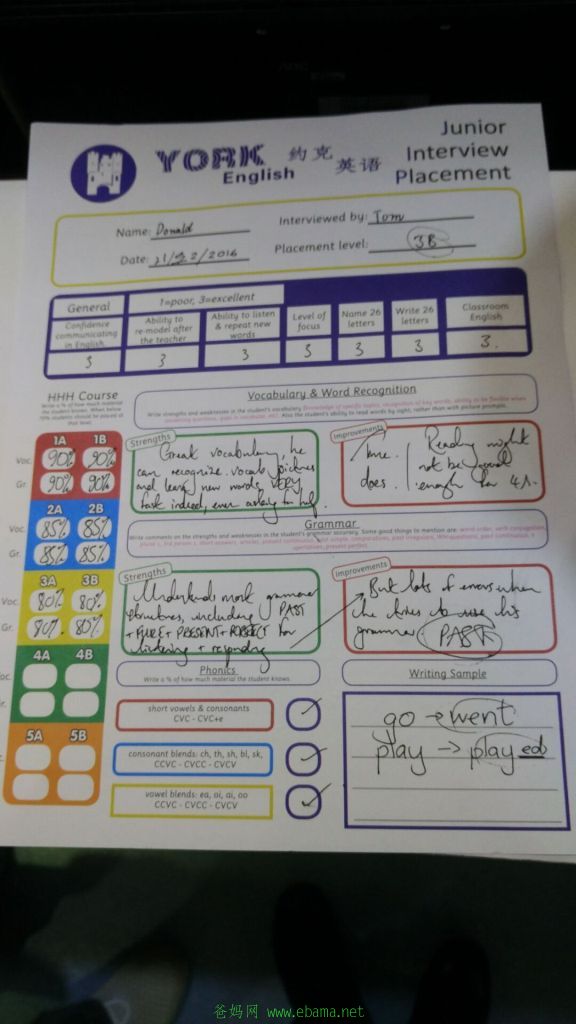 YORK
English
约克
英语
Junior
Interview
Placement
Name: Donald
Interviewed by: Tom
Date: /2016
Placement level: 3B
General
1=poor, 3=excellent
Confidence communicating in English.
Ability to re-model after the teacher
Ability to listen & repeat new words
Level of focus
Name 26 letters
Write 26 letters
Classroom English
3 3 3 3 3 3 3.
HHH Course
Write a % of how much material the student knows. When below
70% students should be placed at that level.
Vocabulary & Word Recognition
Write strengths and weaknesses in the student's vocabulary
Also the student's ability to read words by sight, rather than with picture prompts.
1A 1B
Voc. 90% 90%
Gr. 90% 90%
2A 2B
Voc. 85% 85%
Gr. 85% 85%
3A 3B
Voc. 80% 80%
Gr. 80% 80%
4A 4B
5A 5B
Strengths
Great vocabulary, he
can recognize vocab pictures
and learn new words VERY
fast indeed, even asking for help.
Improvements
does.
Reading might
not be good
enough for 4A.
Grammar
Write comments on the strengths and weaknesses in the student's grammar accuracy. Some good things to mention are: word order, verb conjugation,
Strengths
Understands most grammar
structures, including PAST
+ FUTURE + PRESENT + PERFECT for
listening + responding
Improvements
But lots of errors when
he tries to use his
grammar PAST
Phonics
Write a % of how much material the student knows
short vowels & consonants
CVC - CVC+e
consonant blends: ch, th, sh, bl, sk,
CCVC - CVCC - CVCV
vowel blends: ea, oi, ai, oo
CCVC - CVCC - CVCV
Writing Sample
go → went
play → played
爸妈网 www.ebama.net